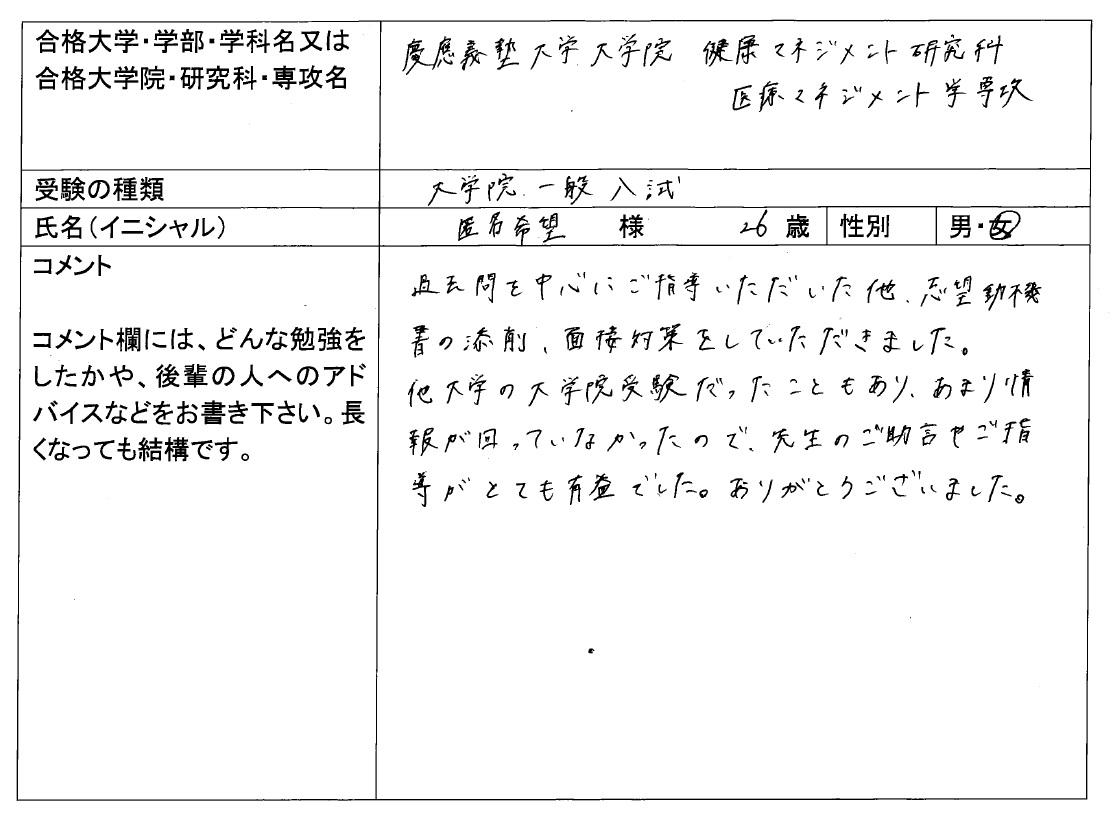 合格大学・学部・学科名又は
合格大学院・研究科・専攻名
慶應義塾大学大学院 健康マネジメント研究科
医療マネジメント学専攻
受験の種類
大学院一般入試
氏名（イニシャル）
匿名希望 様 26 歳 性別 男・女
コメント
コメント欄には、どんな勉強を
したかや、後輩の人へのアド
バイスなどをお書き下さい。長
くなっても結構です。
過去問を中心にご指導いただいた他、志望動機
書の添削、面接対策をしていただきました。
他大学の大学院受験だったこともあり、あまり情
報が回っていなかったので、先生のご助言やご指
導がとても有益でした。ありがとうございました。